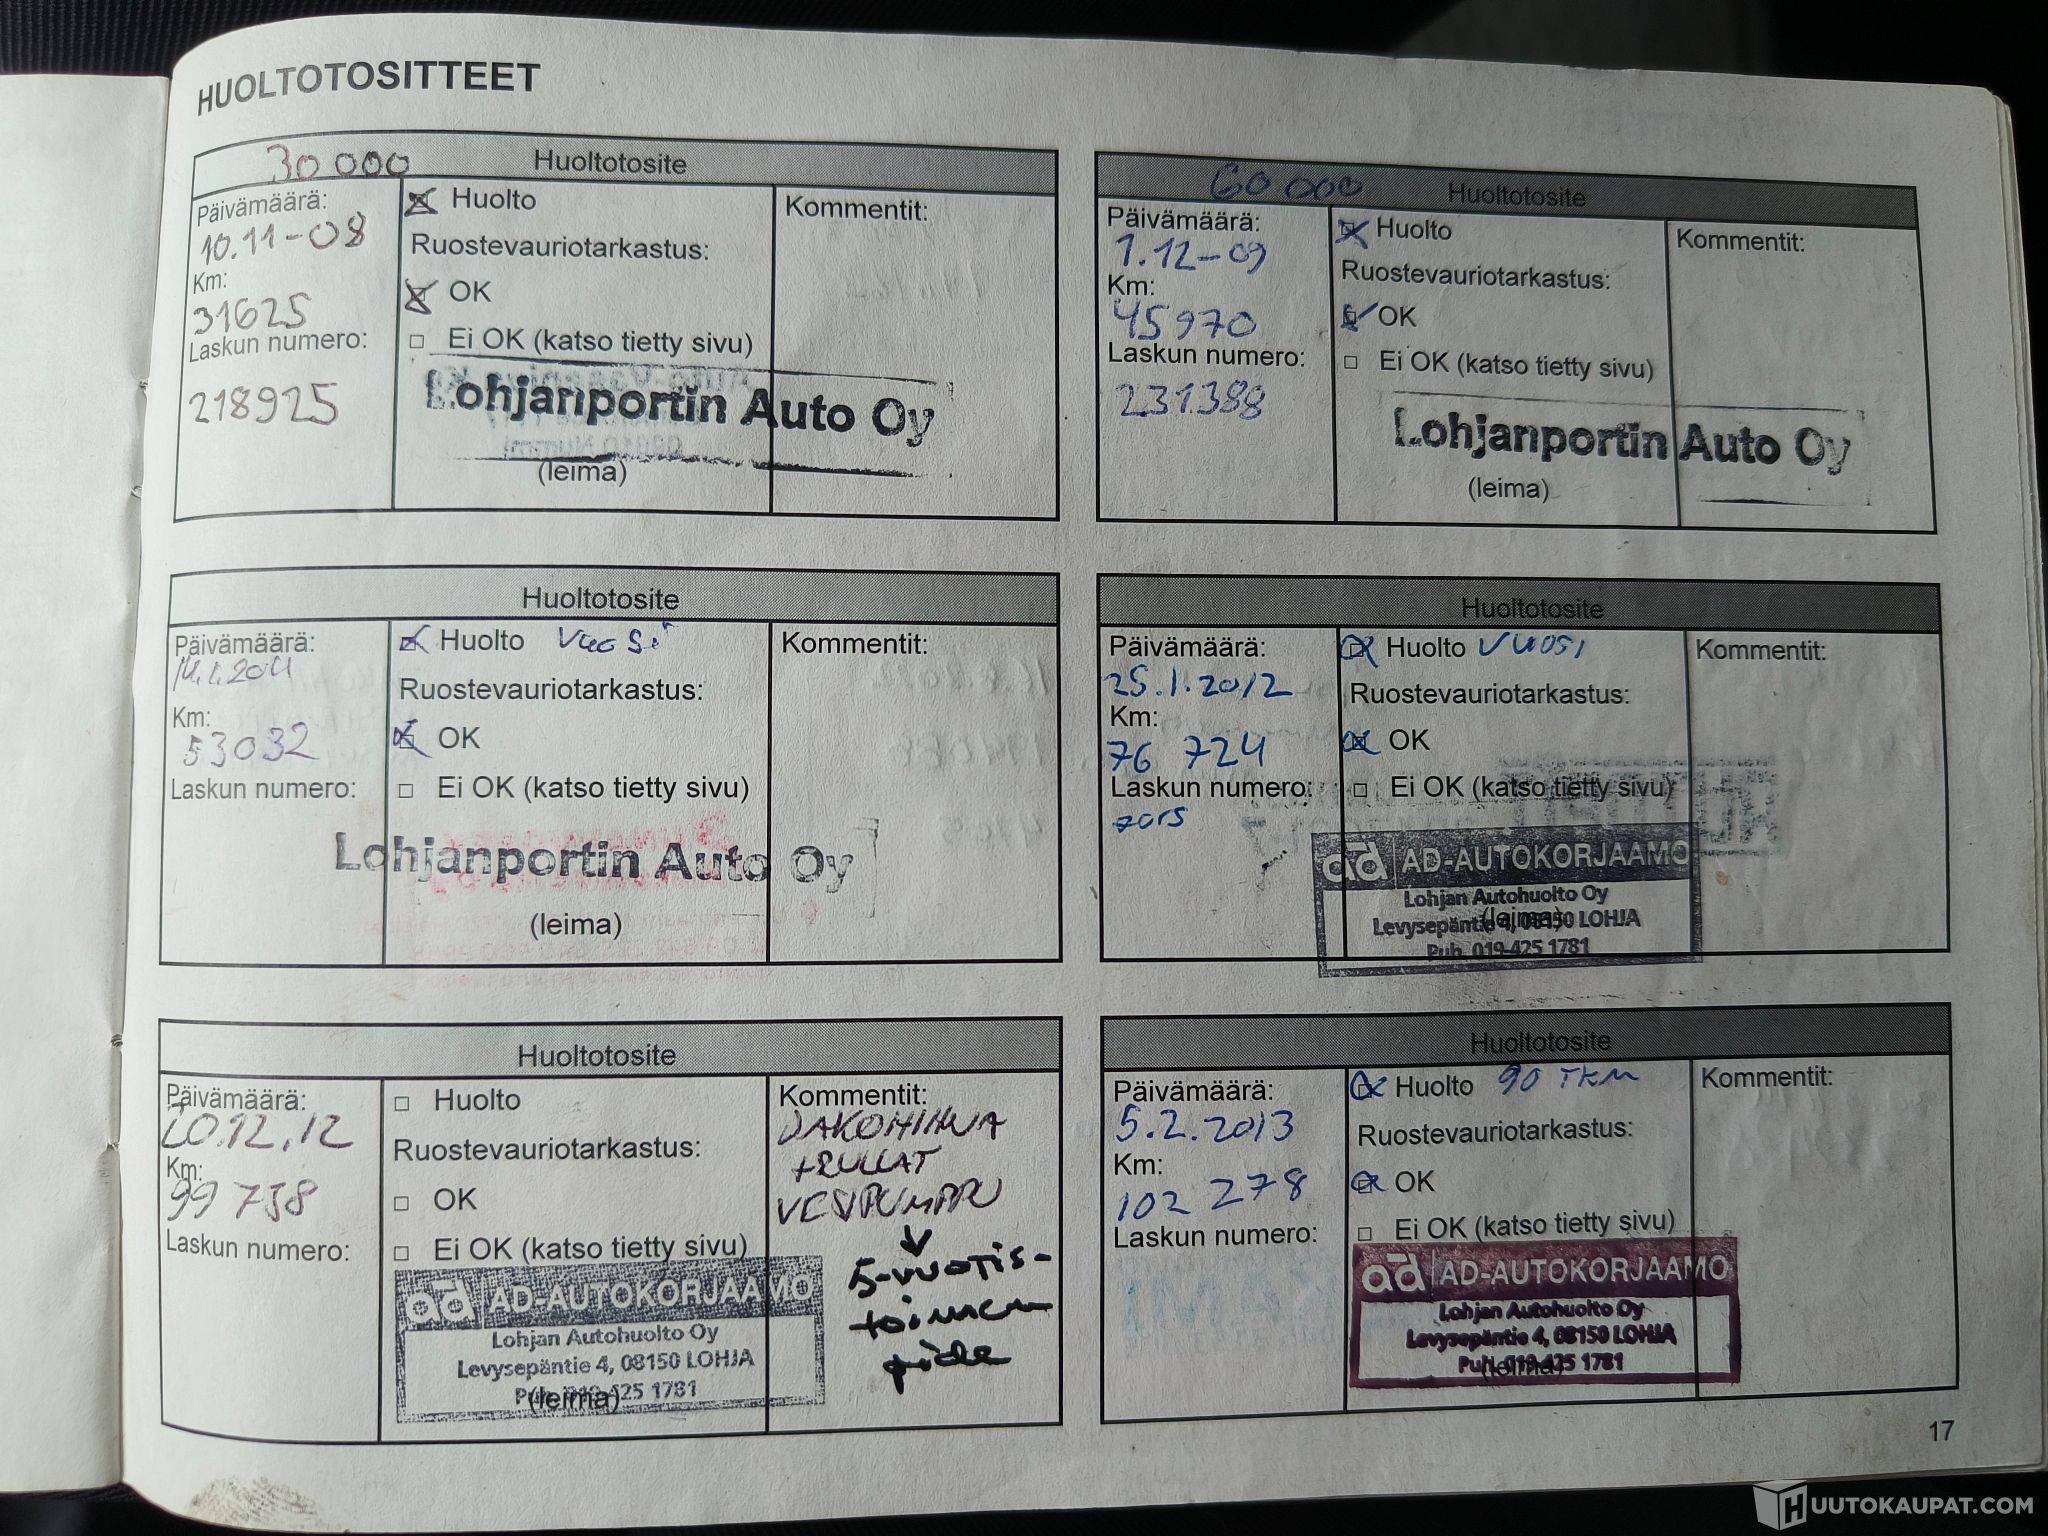 HUOLTOTOSITTEET
30 000 Huoltotosite
Päivämäärä:
10.11-08
Km:
31625
Laskun numero:
218925
Huolto
Ruostevauriotarkastus:
OK
Ei OK (katso tietty sivu)
Lohjanportin Auto Oy
(leima)
Kommentit:
60 000 Huoltotosite
Päivämäärä:
1.12-09
Km:
45970
Laskun numero:
231388
Huolto
Ruostevauriotarkastus:
OK
Ei OK (katso tietty sivu)
Lohjanportin Auto Oy
(leima)
Kommentit:
Huoltotosite
Päivämäärä:
14.1.2011
Km:
53032
Laskun numero:
Huolto Vuosi
Ruostevauriotarkastus:
OK
Ei OK (katso tietty sivu)
Lohjanportin Auto Oy
(leima)
Kommentit:
Huoltotosite
Päivämäärä:
25.1.2012
Km:
76 724
Laskun numero:
7015
Huolto VUOSI
Ruostevauriotarkastus:
OK
Ei OK (katso tietty sivu)
ad AD-AUTOKORJAAMO
Lohjan Autohuolto Oy
Levysepäntie 4, 08150 LOHJA
Puh. 019-425 1781
(leima)
Kommentit:
Huoltotosite
Päivämäärä:
20.12.12
Km:
99 738
Laskun numero:
Huolto
Ruostevauriotarkastus:
OK
Ei OK (katso tietty sivu)
ad AD-AUTOKORJAAMO
Lohjan Autohuolto Oy
Levysepäntie 4, 08150 LOHJA
Puh. 019-425 1781
(leima)
Kommentit:
JAKOHIHNA
+RULLAT
VESIPUMPPU
↓
5-vuotis-
toimen
pide
Huoltotosite
Päivämäärä:
5.2.2013
Km:
102 278
Laskun numero:
Huolto 90 TKM
Ruostevauriotarkastus:
OK
Ei OK (katso tietty sivu)
ad AD-AUTOKORJAAMO
Lohjan Autohuolto Oy
Levysepäntie 4, 08150 LOHJA
Puh. 019-425 1781
(leima)
Kommentit:
17
HUUTOKAUPAT.COM